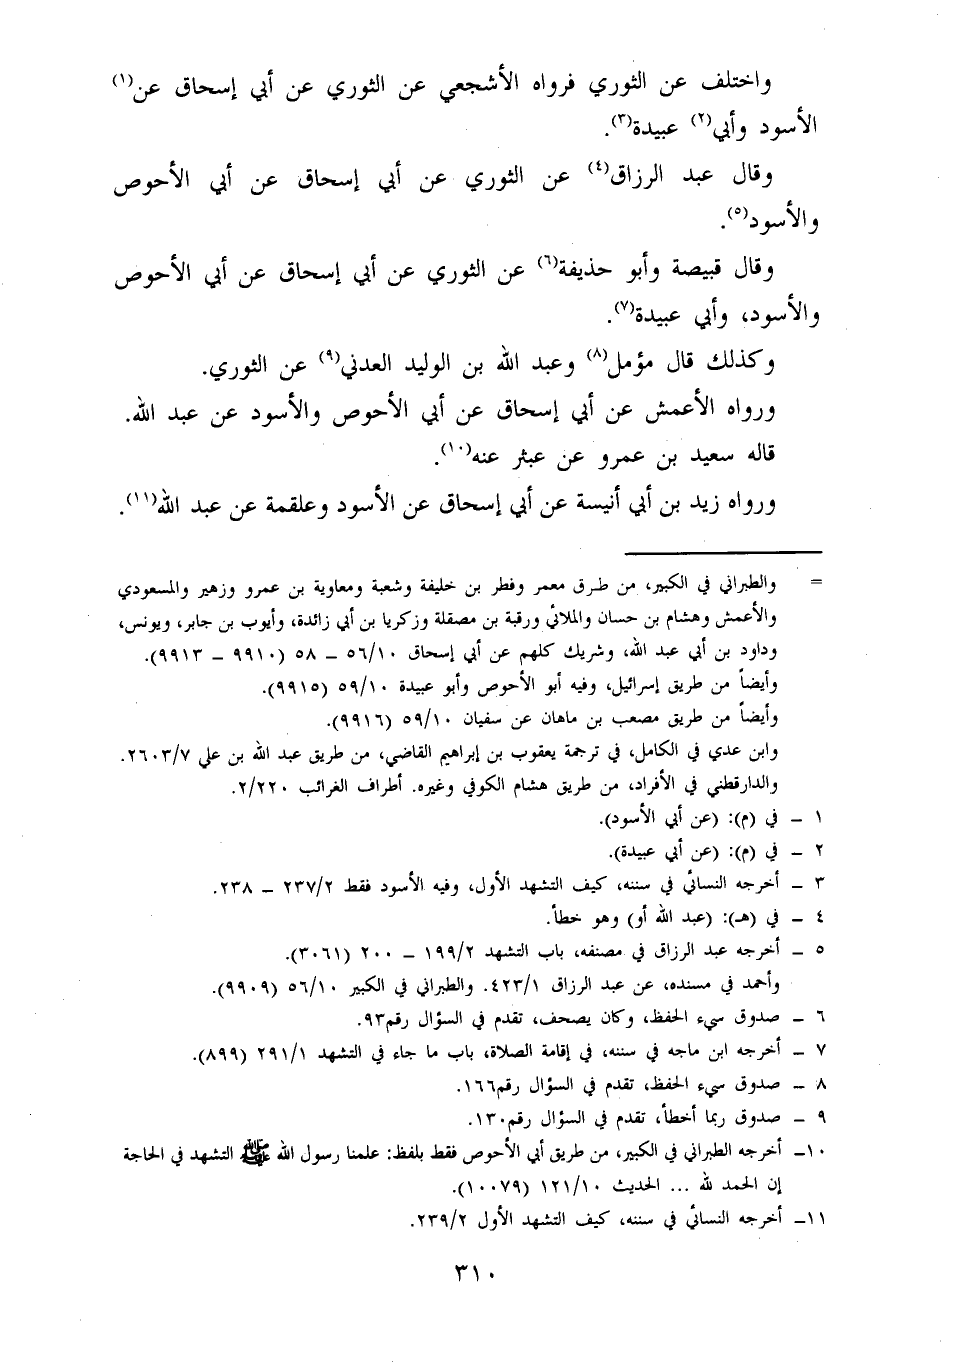 واختلف عن الثوري فرواه الأشجعي عن الثوري عن أبي إسحاق عن(١)
الأسود وأبي(٢) عبيدة(٣).
وقال عبد الرزاق(٤) عن الثوري عن أبي إسحاق عن أبي الأحوص
والأسود(٥).
وقال قبيصة وأبو حذيفة(٦) عن الثوري عن أبي إسحاق عن أبي الأحوص
والأسود، وأبي عبيدة(٧).
وكذلك قال مؤمل(٨) وعبد الله بن الوليد العدني(٩) عن الثوري.
ورواه الأعمش عن أبي إسحاق عن أبي الأحوص والأسود عن عبد الله.
قاله سعيد بن عمرو عن عبثر عنه(١٠).
ورواه زيد بن أبي أنيسة عن أبي إسحاق عن الأسود وعلقمة عن عبد الله(١١).
= والطبراني في الكبير، من طرق معمر وفطر بن خليفة وشعبة ومعاوية بن عمرو وزهير والمسعودي
والأعمش وهشام بن حسان والملائي ورقبة بن مصقلة وزكريا بن أبي زائدة، وأيوب بن جابر، ويونس،
وداود بن أبي عبد الله، وشريك كلهم عن أبي إسحاق ٥٦/١٠ – ٥٨ (٩٩١٠ – ٩٩١٣).
وأيضاً من طريق إسرائيل، وفيه أبو الأحوص وأبو عبيدة ٥٩/١٠ (٩٩١٥).
وأيضاً من طريق مصعب بن ماهان عن سفيان ٥٩/١٠ (٩٩١٦).
وابن عدي في الكامل، في ترجمة يعقوب بن إبراهيم القاضي، من طريق عبد الله بن علي ٢٦٠٣/٧.
والدارقطني في الأفراد، من طريق هشام الكوفي وغيره. أطراف الغرائب ٢/٢٢٠.
١ – في (م): (عن أبي الأسود).
٢ – في (م): (عن أبي عبيدة).
٣ – أخرجه النسائي في سننه، كيف التشهد الأول، وفيه الأسود فقط ٢٣٧/٢ – ٢٣٨.
٤ – في (هـ): (عبد الله أو) وهو خطأ.
٥ – أخرجه عبد الرزاق في مصنفه، باب التشهد ١٩٩/٢ – ٢٠٠ (٣٠٦١).
وأحمد في مسنده، عن عبد الرزاق ٤٢٣/١. والطبراني في الكبير ٥٦/١٠ (٩٩٠٩).
٦ – صدوق سيء الحفظ، وكان يصحف، تقدم في السؤال رقم٩٣.
٧ – أخرجه ابن ماجه في سننه، في إقامة الصلاة، باب ما جاء في التشهد ٢٩١/١ (٨٩٩).
٨ – صدوق سيء الحفظ، تقدم في السؤال رقم١٦٦.
٩ – صدوق ربما أخطأ، تقدم في السؤال رقم١٣٠.
١٠– أخرجه الطبراني في الكبير، من طريق أبي الأحوص فقط بلفظ: علمنا رسول الله ﷺ التشهد في الحاجة
إن الحمد لله ... الحديث ١٢١/١٠ (١٠٠٧٩).
١١– أخرجه النسائي في سننه، كيف التشهد الأول ٢٣٩/٢.
٣١٠